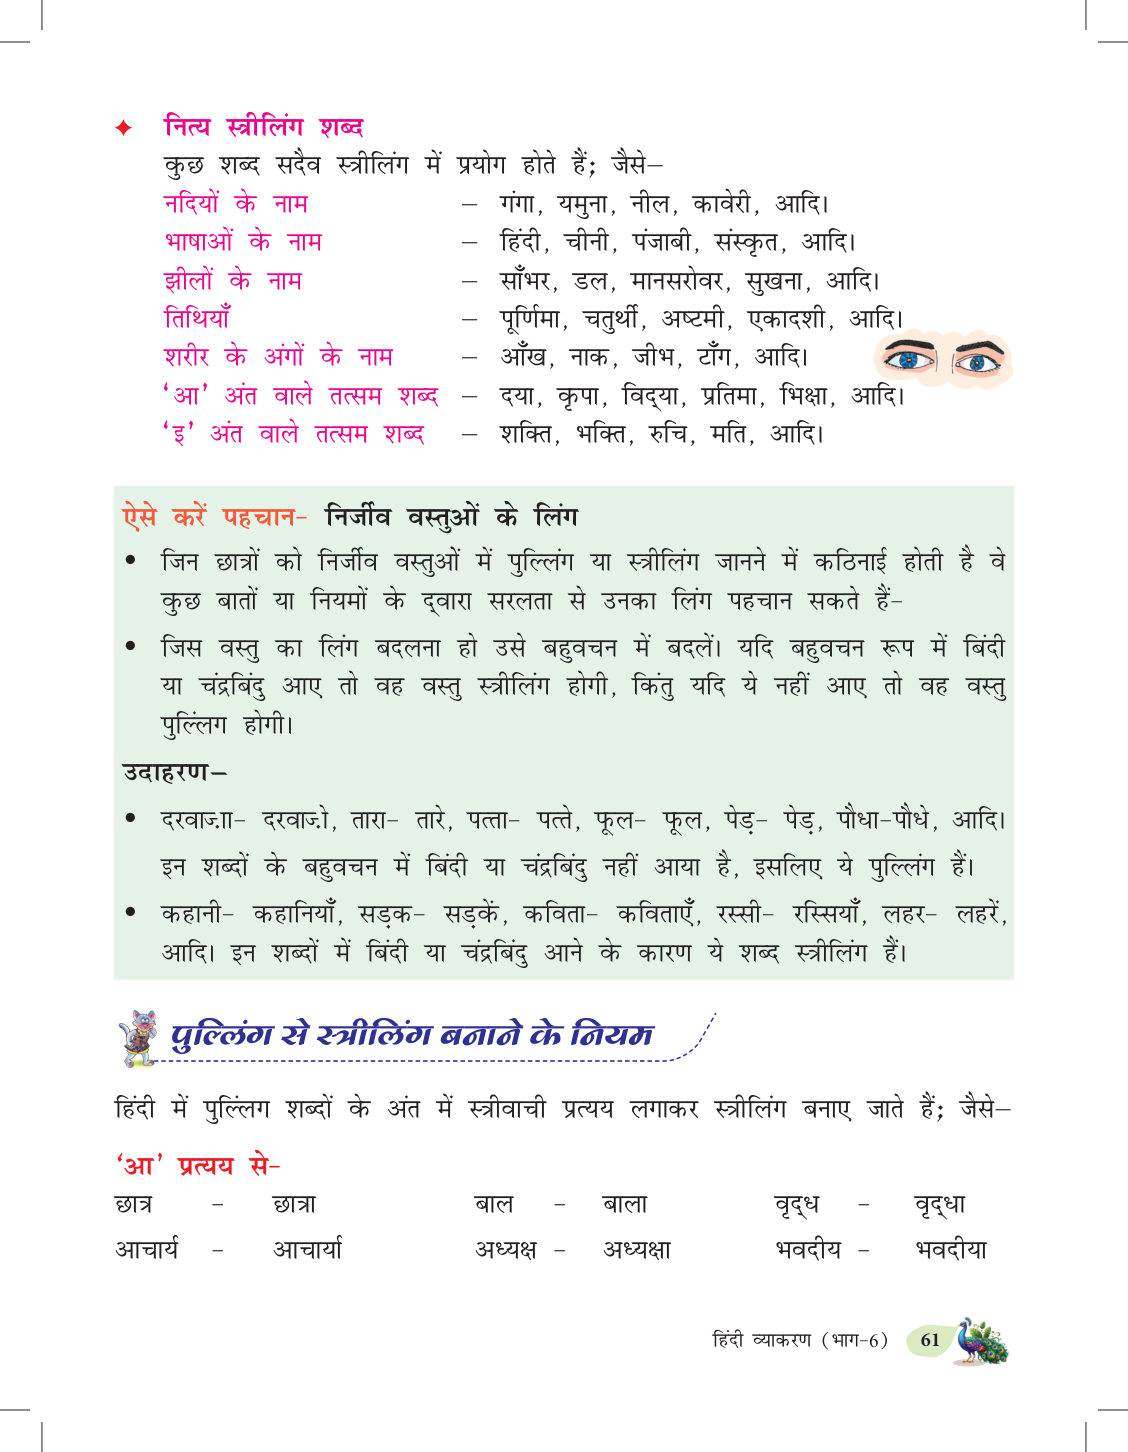 नित्य स्त्रीलिंग शब्द
कुछ शब्द सदैव स्त्रीलिंग में प्रयोग होते हैं; जैसे–
नदियों के नाम – गंगा, यमुना, नील, कावेरी, आदि।
भाषाओं के नाम – हिंदी, चीनी, पंजाबी, संस्कृत, आदि।
झीलों के नाम – साँभर, डल, मानसरोवर, सुखना, आदि।
तिथियाँ – पूर्णिमा, चतुर्थी, अष्टमी, एकादशी, आदि।
शरीर के अंगों के नाम – आँख, नाक, जीभ, टाँग, आदि।
‘आ’ अंत वाले तत्सम शब्द – दया, कृपा, विद्‌या, प्रतिमा, भिक्षा, आदि।
‘इ’ अंत वाले तत्सम शब्द – शक्ति, भक्ति, रुचि, मति, आदि।
ऐसे करें पहचान- निर्जीव वस्तुओं के लिंग
• जिन छात्रों को निर्जीव वस्तुओं में पुल्लिंग या स्त्रीलिंग जानने में कठिनाई होती है वे
कुछ बातों या नियमों के द्‌वारा सरलता से उनका लिंग पहचान सकते हैं-
• जिस वस्तु का लिंग बदलना हो उसे बहुवचन में बदलें। यदि बहुवचन रूप में बिंदी
या चंद्रबिंदु आए तो वह वस्तु स्त्रीलिंग होगी, किंतु यदि ये नहीं आए तो वह वस्तु
पुल्लिंग होगी।
उदाहरण–
• दरवाज़ा- दरवाज़े, तारा- तारे, पत्ता- पत्ते, फूल- फूल, पेड़- पेड़, पौधा-पौधे, आदि।
इन शब्दों के बहुवचन में बिंदी या चंद्रबिंदु नहीं आया है, इसलिए ये पुल्लिंग हैं।
• कहानी- कहानियाँ, सड़क- सड़कें, कविता- कविताएँ, रस्सी- रस्सियाँ, लहर- लहरें,
आदि। इन शब्दों में बिंदी या चंद्रबिंदु आने के कारण ये शब्द स्त्रीलिंग हैं।
पुल्लिंग से स्त्रीलिंग बनाने के नियम
हिंदी में पुल्लिंग शब्दों के अंत में स्त्रीवाची प्रत्यय लगाकर स्त्रीलिंग बनाए जाते हैं; जैसे–
‘आ’ प्रत्यय से-
छात्र - छात्रा बाल - बाला वृद्‌ध - वृद्‌धा
आचार्य - आचार्या अध्यक्ष - अध्यक्षा भवदीय - भवदीया
हिंदी व्याकरण (भाग-6) 61